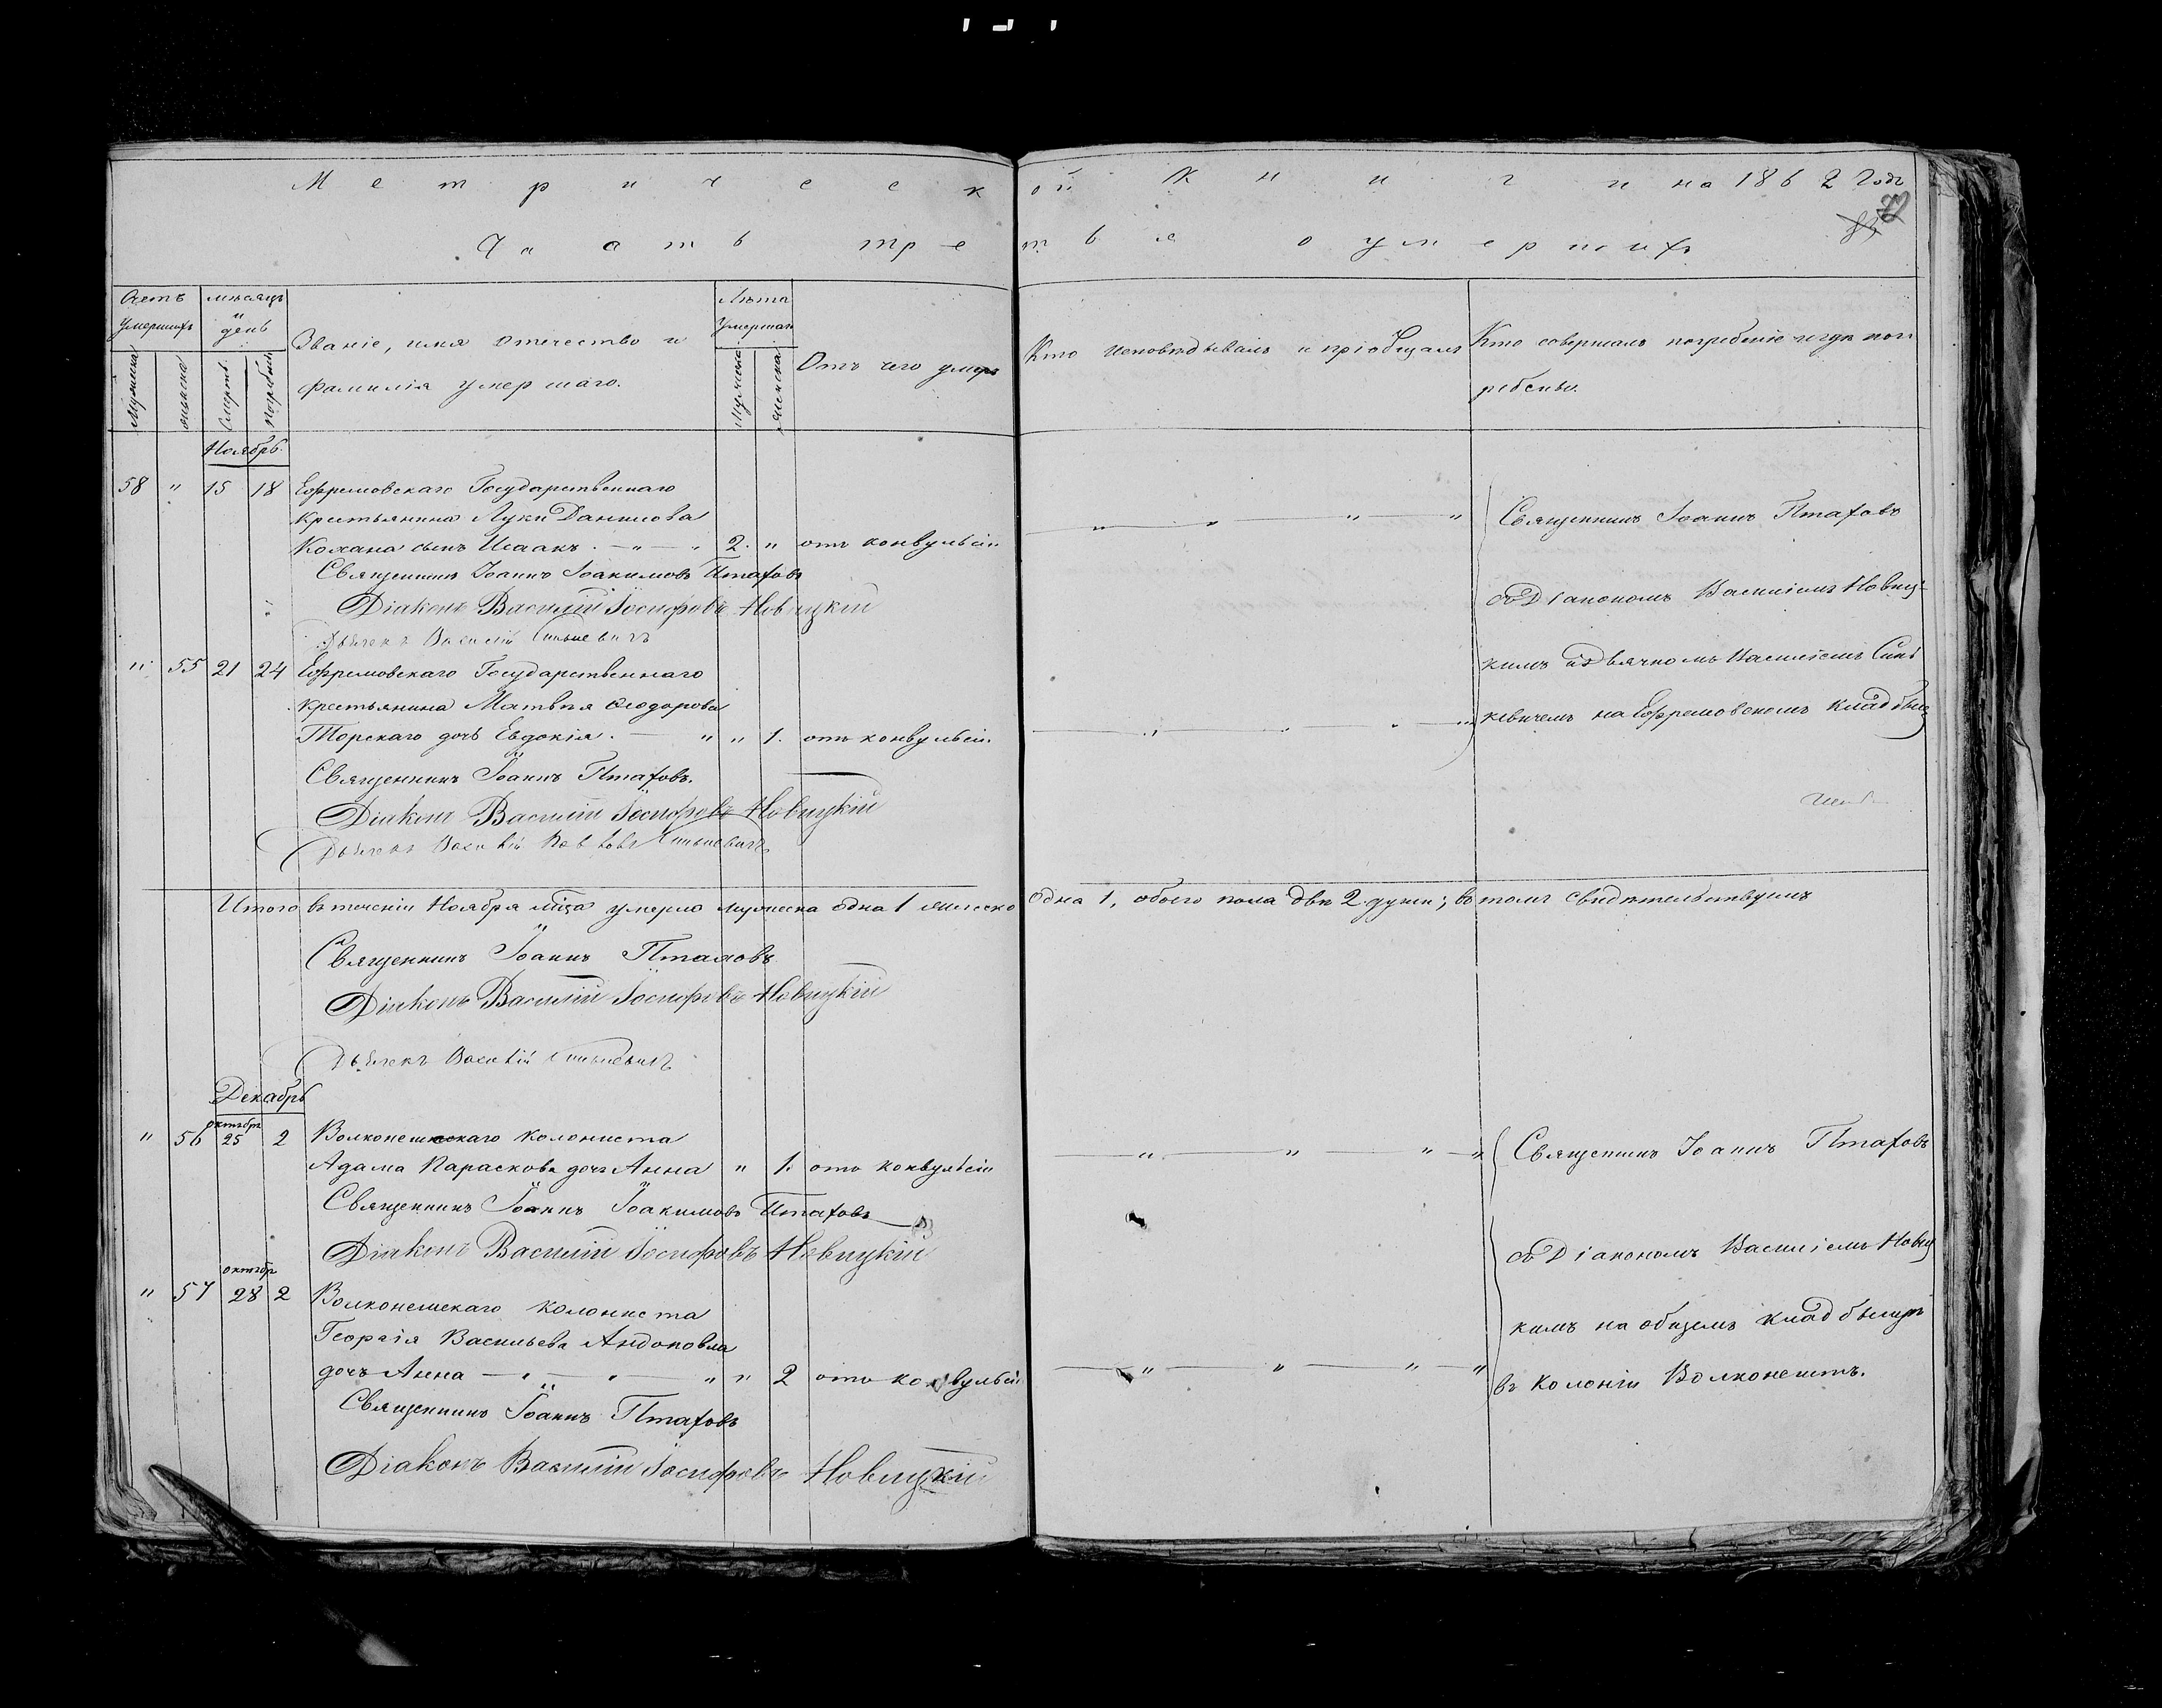 Метрической Книги на 1862 Годъ
Часть третья о умершихъ
Счетъ умершихъ
мѣсяцъ и день
Мужеска
женска
смерти
погребенія
Званіе, имя отечество и
фамилія умершаго.
Лѣта Умершаго
Мужеска
женска
Отъ чего умеръ
Кто исповѣдывалъ и пріобщалъ
Кто совершалъ погребеніе и гдѣ пог
ребены.
Ноябрь.
58 " 15 18 Ефремовскаго Государственнаго
крестьянина Луки Данилова
Кохана сынъ Исаакъ. 2. " отъ конвульсіи
Священникъ Іоаннъ Іоакимовъ Птаховъ
Діаконъ Василій Іосифовъ Новицкій
Дьячекъ Василій Синькевичъ
Священникъ Іоаннъ Птаховъ
съ Діакономъ Василіемъ Новиц-
кимъ и Дьячкомъ Василіемъ Синь
кевичемъ на Ефремовскомъ кладбищ
" 55 21 24 Ефремовскаго Государственнаго
крестьянина Матвѣя Ѳеодорова
Торскаго дочь Евдокія. " " 1. отъ конвульсіи.
Священникъ Іоаннъ Птаховъ.
Діаконъ Василій Іосифовъ Новицкій
Дьячекъ Василій Синькевичъ
Итого въ теченіи Ноября мѣца умерло мужеска одна 1 женска одна 1, обоего пола двѣ 2 души; въ томъ свидѣтельствуемъ
Священникъ Іоаннъ Птаховъ
Діаконъ Василій Іосифовъ Новицкій
Дьячекъ Василій Синькевичъ
Декабрь
октября
" 56 25 2 Волконешскаго колониста
Адама Параскова дочь Анна " 1. отъ конвульсіи
Священникъ Іоаннъ Іоакимовъ Птаховъ
Діаконъ Василій Іосифовъ Новицкій
Священникъ Іоаннъ Птаховъ
съ Діакономъ Василіемъ Новиц
кимъ на общемъ кладбищѣ
въ колоніи Волконештъ.
октябр
" 57 28 2 Волконешскаго колониста
Георгія Васильева Андонова
дочь Анна " " 2 отъ конвульсіи
Священникъ Іоаннъ Птаховъ
Діаконъ Василій Іосифовъ Новицкій